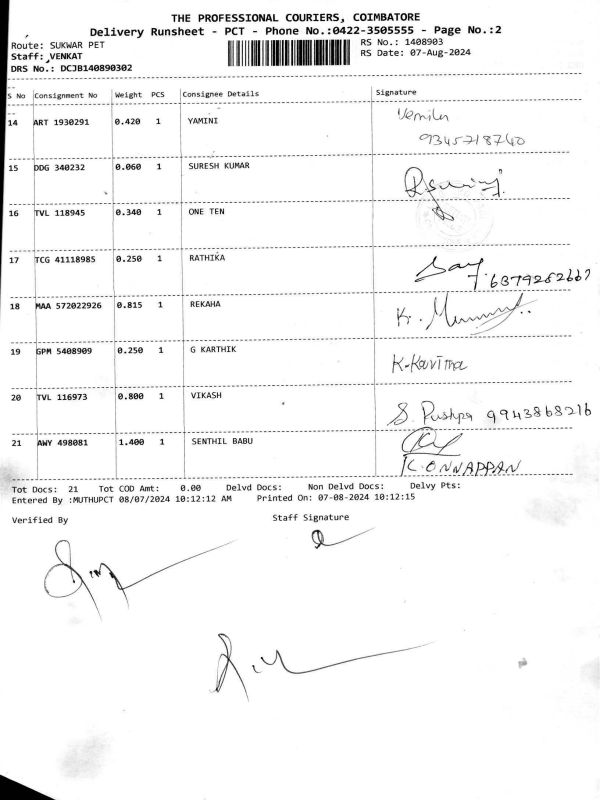 THE PROFESSIONAL COURIERS, COIMBATORE
Delivery Runsheet - PCT - Phone No.:0422-3505555 - Page No.:2
Route: SUKWAR PET RS No.: 1408903
Staff: VENKAT RS Date: 07-Aug-2024
DRS No.: DCJB140890302
S No Consignment No Weight PCS Consignee Details Signature
14 ART 1930291 0.420 1 YAMINI
9345718740
15 DDG 340232 0.060 1 SURESH KUMAR
16 TVL 118945 0.340 1 ONE TEN
17 TCG 41118985 0.250 1 RATHIKA
6379282667
18 MAA 572022926 0.815 1 REKAHA K.
19 GPM 5408909 0.250 1 G KARTHIK
K-Kavitha
20 TVL 116973 0.800 1 VIKASH
S. Pushpa 9943868216
21 AWY 498081 1.400 1 SENTHIL BABU
K.ONNAPPAN
Tot Docs: 21 Tot COD Amt: 0.00 Delvd Docs: Non Delvd Docs: Delvy Pts:
Entered By :MUTHUPCT 08/07/2024 10:12:12 AM Printed On: 07-08-2024 10:12:15
Verified By Staff Signature